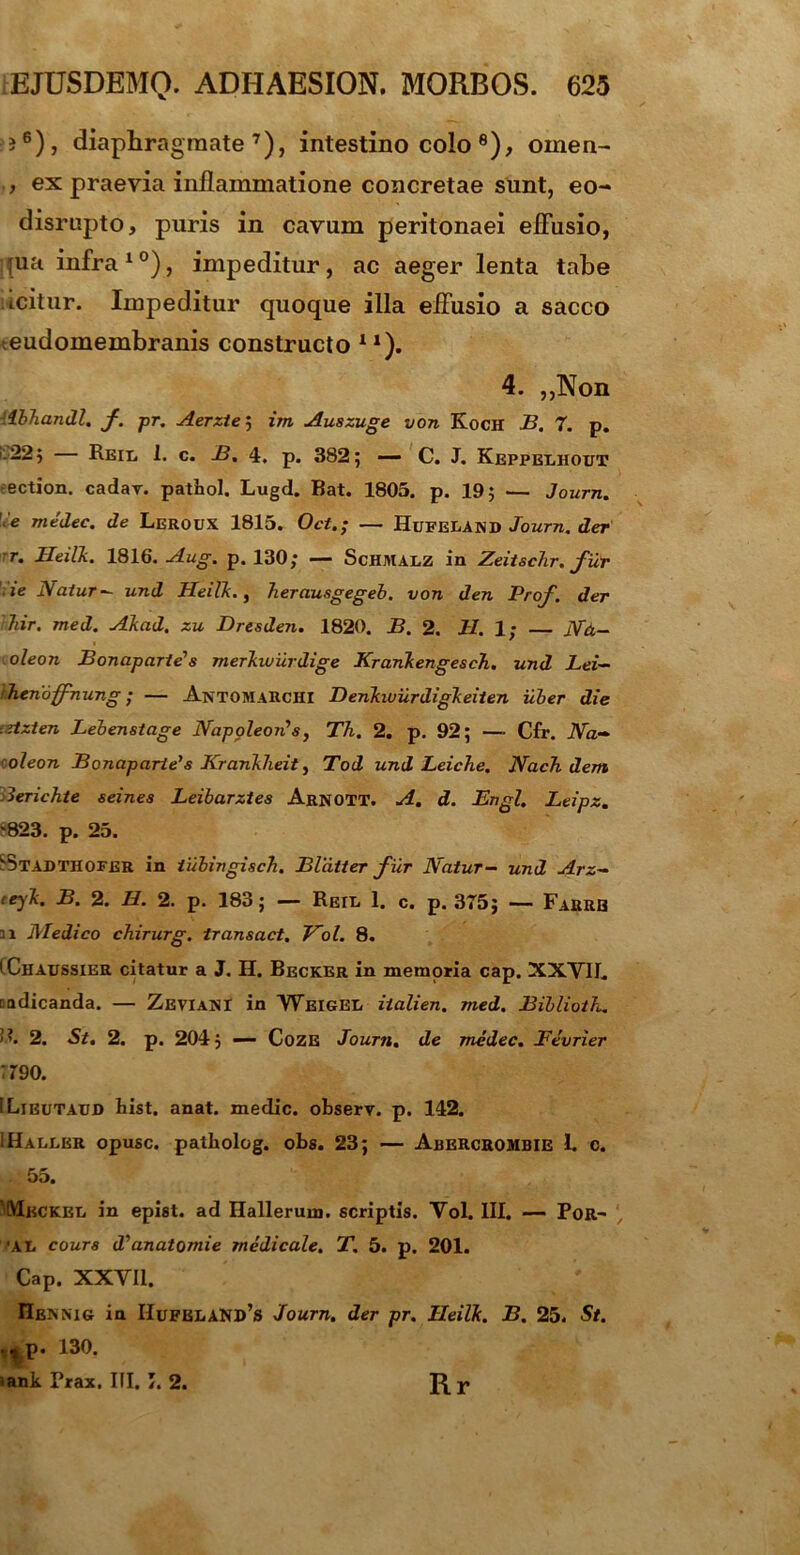 EJUSDEMQ. ADHAESION. MORBOS. 625
⁶), diaphragmate⁷), intestino colo⁸), omen-
, ex praevia inflammatione concretae sunt, eo-
disrupto, puris in cavum peritonaei effusio,
qua infra¹⁰), impeditur, ac aeger lenta tabe
icitur. Impeditur quoque illa effusio a sacco
eudomembranis constructo¹¹).
4. „Non
Abhandl. f. pr. Aerzte; im Auszuge von Koch B. 7. p.
22; — Reil l. c. B. 4. p. 382; — C. J. Keppelhout
ection. cadav. pathol. Lugd. Bat. 1805. p. 19; — Journ.
e médec. de Leroux 1815. Oct.; — Hufeland Journ. der
r. Heilk. 1816. Aug. p. 130; — Schmalz in Zeitschr. für
ie Natur- und Heilk., herausgegeb. von den Prof. der
hir. med. Akad. zu Dresden. 1820. B. 2. H. 1; — Na-
oleon Bonaparte's merkwürdige Krankengesch. und Lei-
henöffnung; — Antomarchi Denkwürdigkeiten über die
etzten Lebenstage Napoleon's, Th. 2. p. 92; — Cfr. Na-
oleon Bonaparte's Krankheit, Tod und Leiche. Nach dem
Berichte seines Leibarztes Arnott. A. d. Engl. Leipz.
823. p. 25.
Stadthofer in tübingisch. Blätter für Natur- und Arz-
eyk. B. 2. H. 2. p. 183; — Reil l. c. p. 375; — Farre
n Medico chirurg. transact. Vol. 8.
Chaussier citatur a J. H. Becker in memoria cap. XXVII.
adicanda. — Zeviani in Weigel italien. med. Biblioth.
B. 2. St. 2. p. 204; — Coze Journ. de médec. Février
1790.
Lieutaud hist. anat. medic. observ. p. 142.
Haller opusc. patholog. obs. 23; — Abercrombie l. c.
55.
Meckel in epist. ad Hallerum. scriptis. Vol. III. — Por-
al cours d'anatomie médicale. T. 5. p. 201.
Cap. XXVII.
Hennig in Hufeland's Journ. der pr. Heilk. B. 25. St.
p. 130.
ank Prax. III. I. 2. Rr